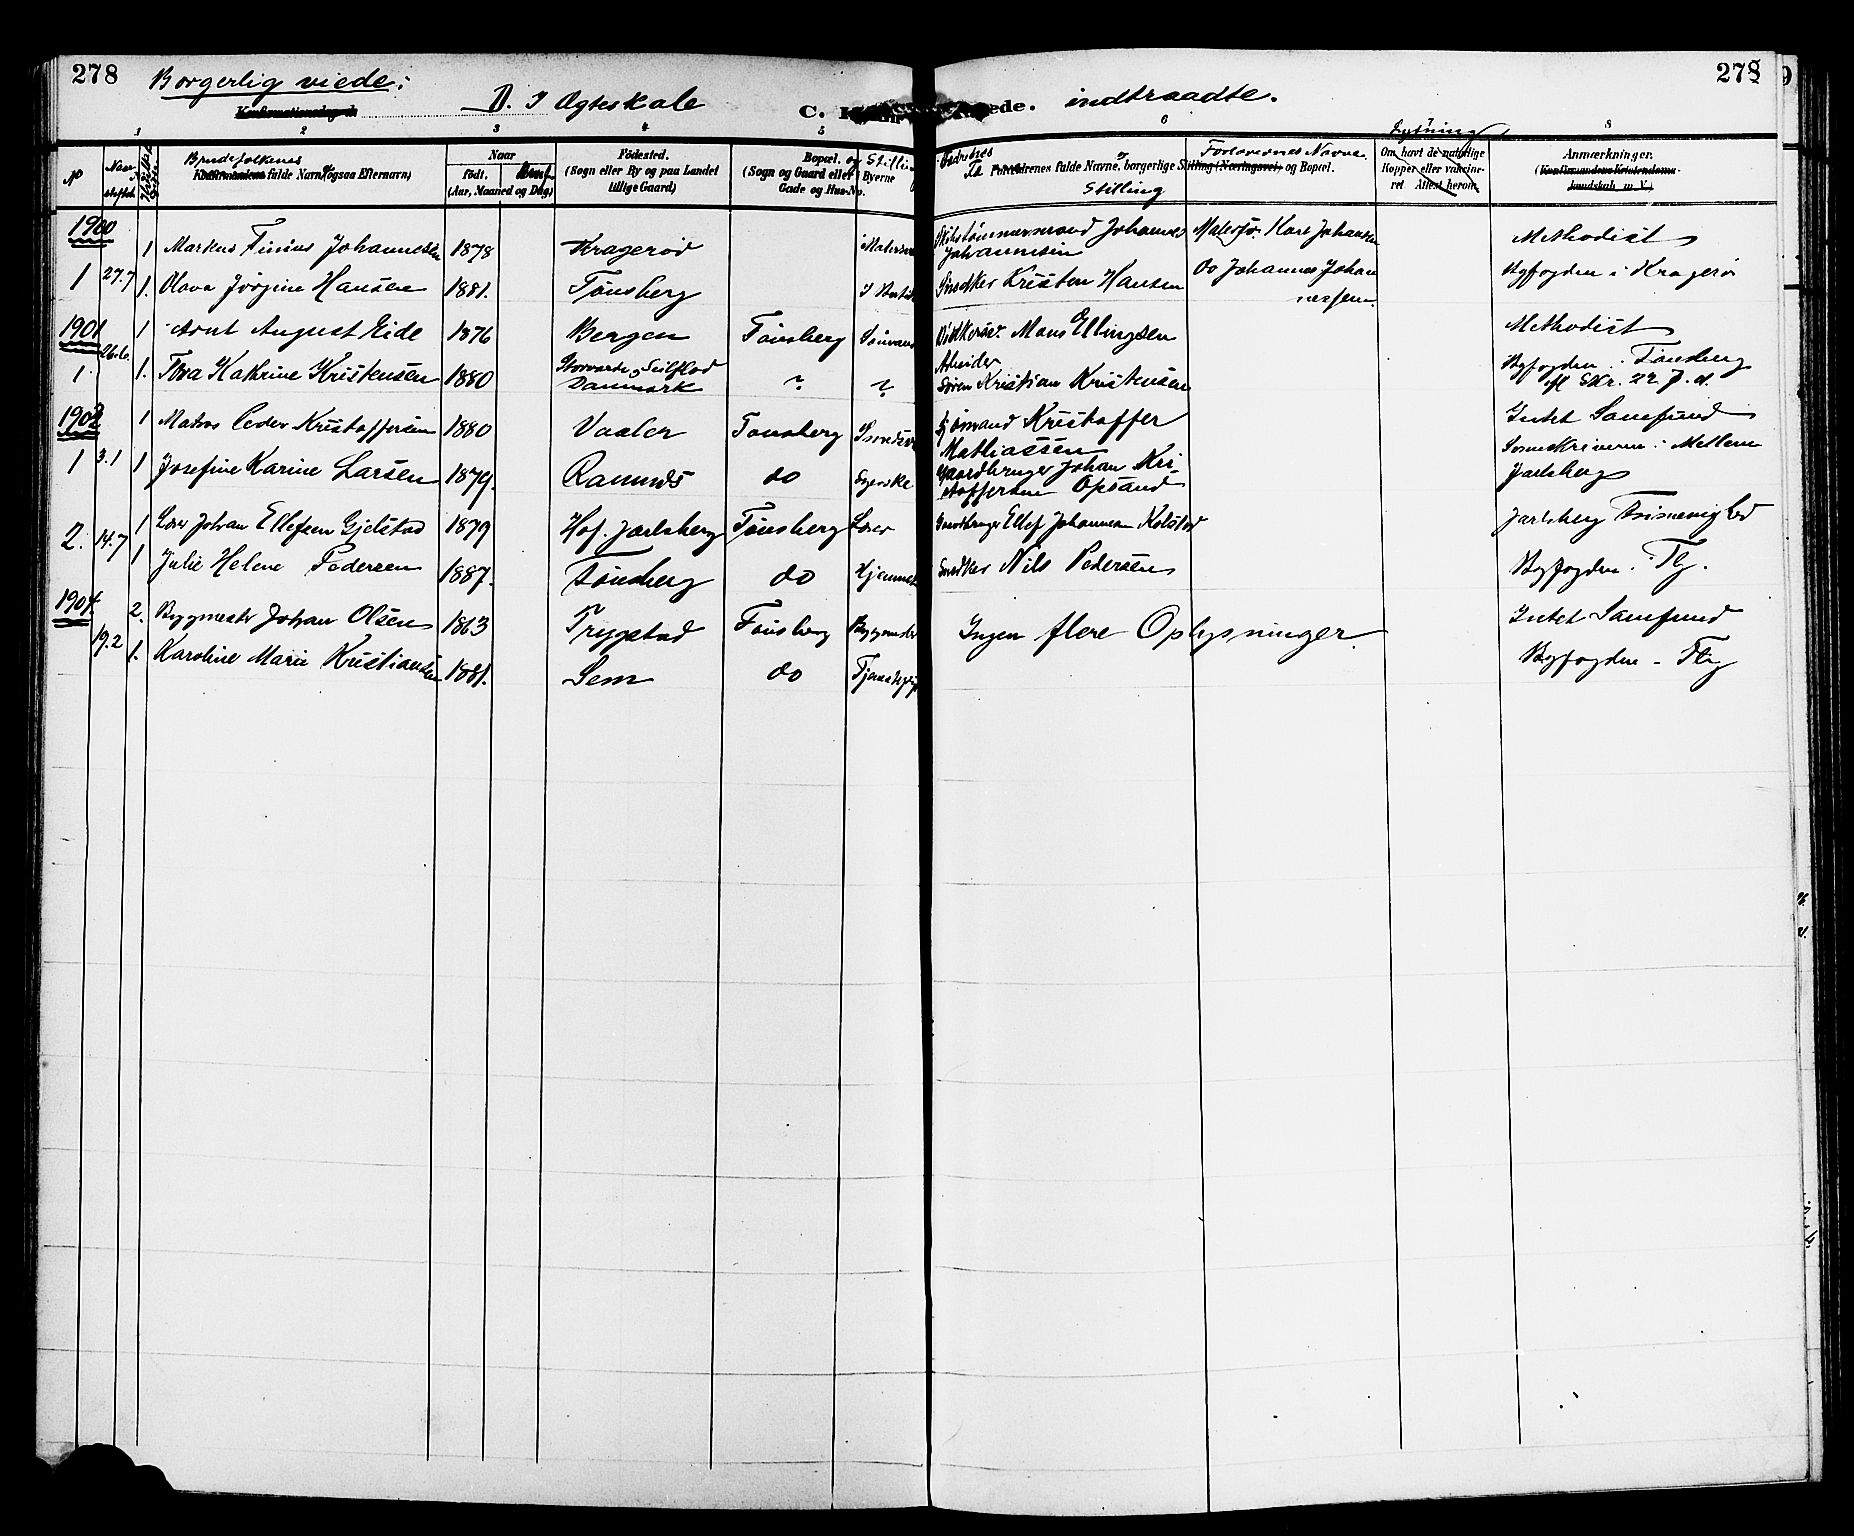 278
Borgerlig viede:
Konfirmationsdag d.
D. I Ægteskale
C. K
ede. indtraadte.
278
1 2 3 4 5 6 8
No
Brudefolkenes
Konfirmandens fulde Navn (ogsaa Efternavn)
Naar
født.
(Aar, Maaned og Dag)
Fødested.
(Sogn eller By og paa Landet
tillige Gaard)
Bopæl. og Stilling
(Sogn og Gaard eller i Byerne
Gade og Hus-No.
Fædrenes
Forældrenes fulde Navne, borgerlige Stilling (Næringsvei) og Bopæl.
Stilling
Forlovernes Navne
Lysning
Om havt de naturlige
Kopper eller vakcine-
ret Attest herom.
Anmærkninger.
(Konfirmandens Kristendoms-
kundskab m. V.)
1900
1 Markus Tinius Johannessen 1878 Kragerød Skibstømmermand Johannes Matersfor. Karl Johansen Methodist
Johannesen
1 27.7 1. Olava Jørgine Hansen 1881. Tønsberg Snedker Kristen Hansen Do Johannes Johan Byfogden i Kragerø
nessen
1901
1 Arnt August Eide 1876 Bergen Tønsberg Mons Ellingsen Methodist
26.6. Arbeider
1 1. Thora Kathrine Kristensen 1880 Danmark ? ? Søren Kristian Kristensen Byfogden i Tønsberg
1902
1 Matros Peder Kristoffersen 1880 Vaaler Tønsberg Sjømand Kristoffer Intet Samfund
Mathiassen
1 3.1 1 Josefine Karine Larsen 1879. Ramnæs do Syerske Gaardbruger Johan Kri- Sorenskriveren i Mellem
stoffersen Opsand Jarlsberg
2. 14.7 1 Lærer Johan Ellefsen Gjelstad 1879 Hof. Jarlsberg Tønsberg Lærer Gaardbruger Ellef Johannesen Kolstad Jarlsberg Frimenighed
1 Julie Helene Pedersen 1887. Tønsberg do Hjemme Snedker Nils Pedersen Byfogden i Tbg.
1904.
19.2 2. Bygmester Johan Olsen 1863 Trygstad Tønsberg Bygmester Ingen flere Oplysninger. Intet Samfund
1. Karoline Marie Kristiansen 1881. Sem do Tjenestepige Byfogden - Tbg